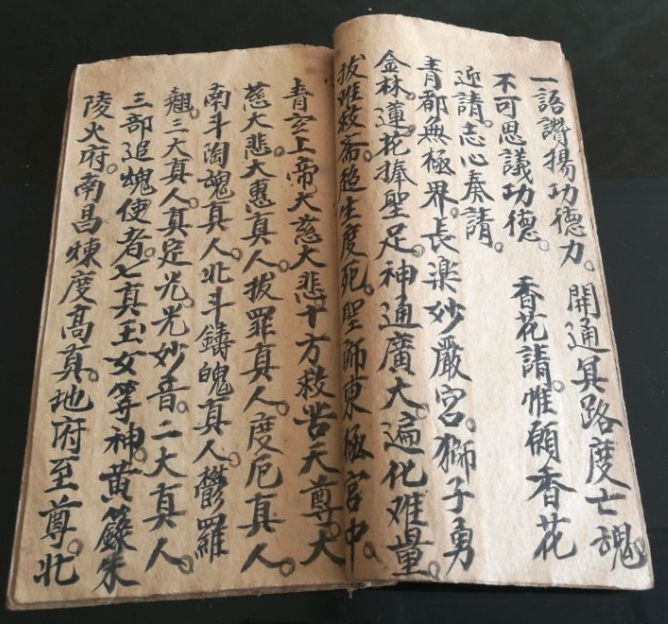 一語讚揚功德力。開通冥路度亡魂
不可思議功德。 香花請。惟願香花
迎請。志心奏請。
青都無極界。長楽妙嚴宮。獅子勇
金林。蓮花捧聖足。神通廣大。遍化难量。
拔难救斋。趋生度死。聖師東極宮中。
青玄上帝大慈大悲十方救苦天尊。大
慈大悲大惠真人。拔罪真人。度厄真人。
南斗陶魂真人。北斗鑄魄真人。欝羅
翹三大真人。真定光。光妙音。二大真人。
三部追魂使者。七真玉女等神。黄籙朱
陵火府。南昌煉度高真。地府至尊。北